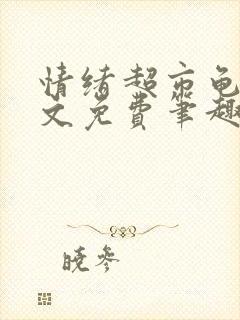 情绪超市龟
文免费笔趣
晓参